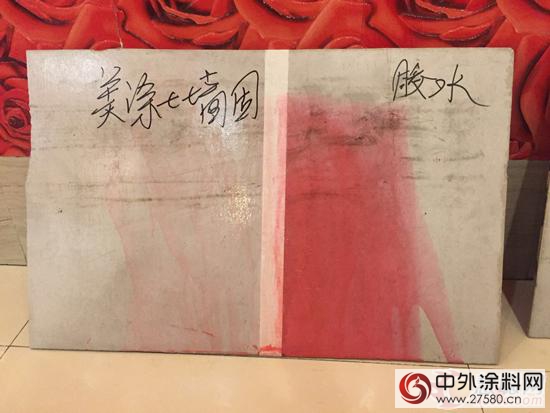 美涂士墙固
胶水
中外涂料网
www.27580.cn